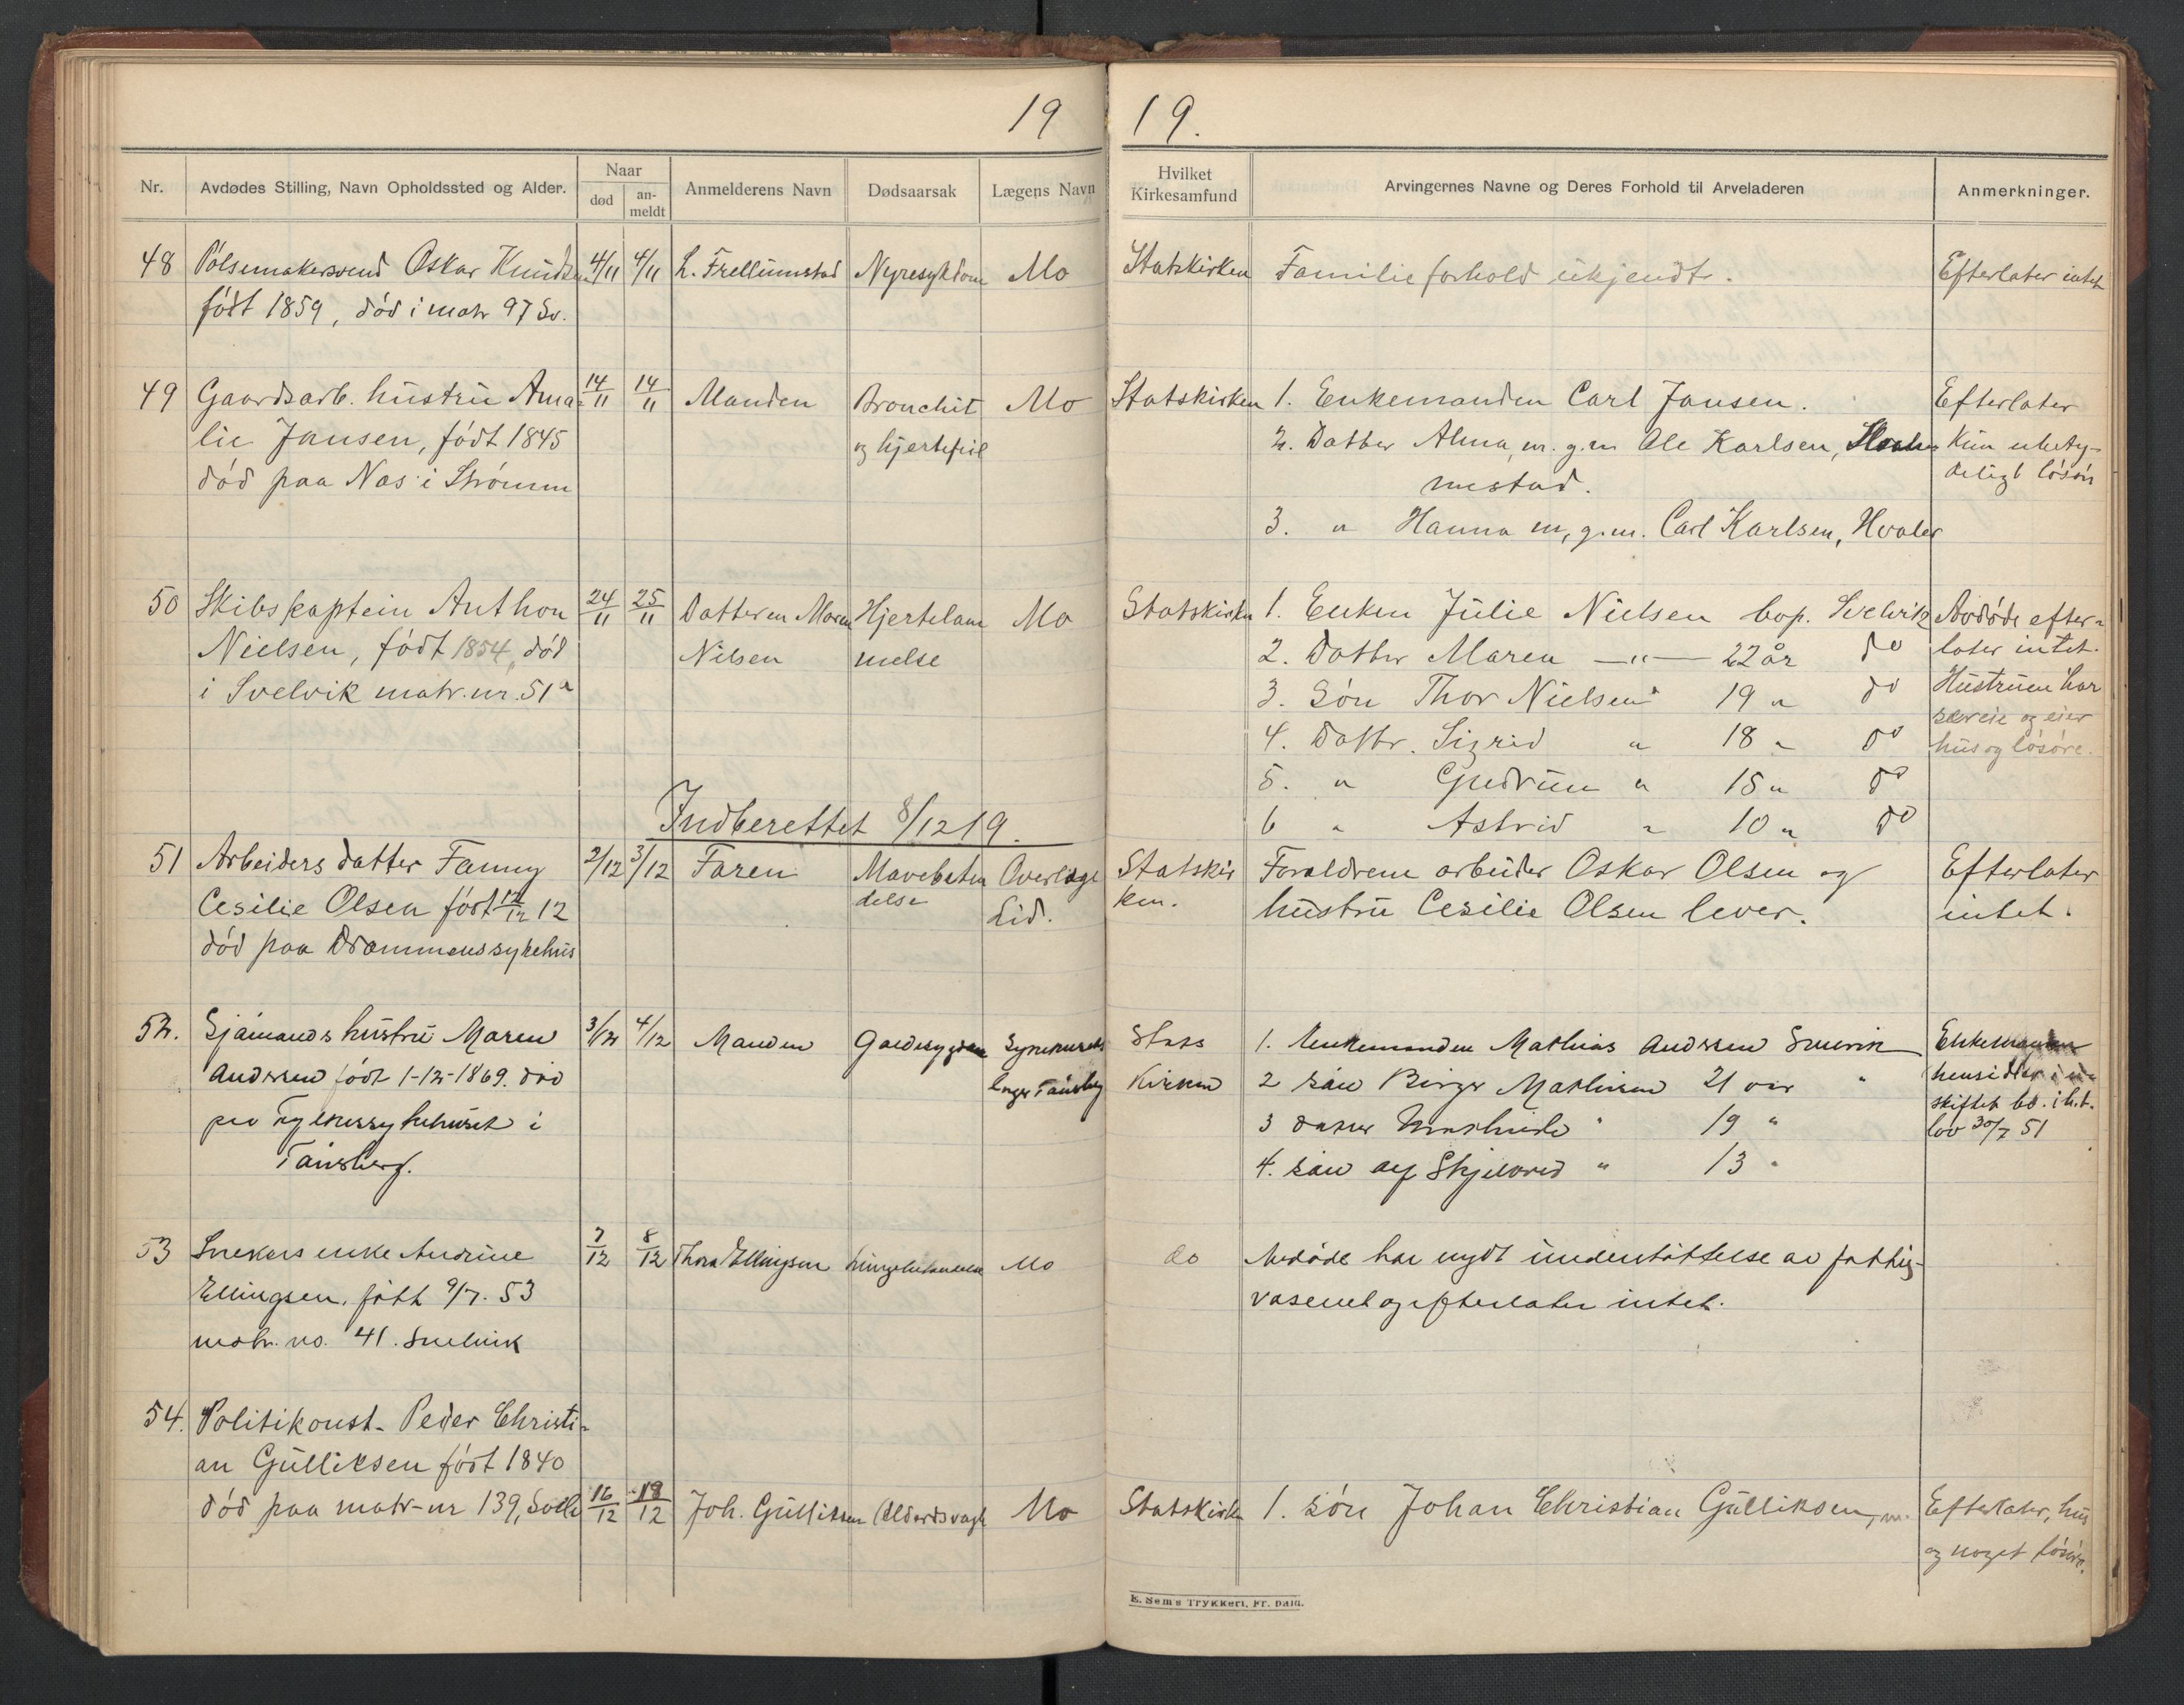 19
19.
Nr.
Avdødes Stilling, Navn Opholdssted og Alder.
Naar
død
an-
meldt
Anmelderens Navn
Dødsaarsak
Lægens Navn
Hvilket
Kirkesamfund
Arvingernes Navne og Deres Forhold til Arveladeren
Anmerkninger.
48 Pølsemakersvend Oskar Knudsen 4/11 4/11 L. Frellumstad Nyresykdom Mo Statskirken Familieforhold ukjendt. Efterlater intet
født 1859, død i matr 97 Sv.
49 Gaardsarb. hustru Ama- 14/11 14/11 Manden Bronchit Mo Statskirken 1. Enkemanden Carl Jansen. Efterlater
lie Jansen, født 1845 og hjertefeil 2. Datter Alma, m. g.m Ole Karlsen, Kun ubety-
død paa Nas i Strømm mestad. deligt løsøre
3. " Hanna m, g.m. Carl Karlsen, Hvaler
50 Skibskaptein Anthon 24/11 25/11 Datteren Maren Hjertelam Mo Statskirken 1. Enken Julie Nielsen bop. Svelvik Avdøde efter-
Nielsen, født 1854, død Nilsen melse 2. Datter Maren —"— 22 år do later intet.
i Svelvik matr. nr. 51a 3. Søn Thor Nielsen 19 " do Hustruen har
4. Dattr. Sigrid " 18 " do særeie og eier
hus og løsøre.
5. " Gudrun " 15 " do
Indberettet 8/12 19.
6 " Astrid " 10 " do
51 Arbeiders datter Fanny 2/12 3/12 Faren Mavebeten Overlæge Statskir Forældrene arbeider Oskar Olsen og Efterlater
Cesilie Olsen født 12/12 12 delse Lid. ken. hustru Cesilie Olsen lever. intet.
død paa Drammens sykehus
52. Sjømands hustru Maren 3/12 4/12 Manden Galdesygdom Stats 1. Enkemanden Mathias Andersen Svelvik Enkemanden
Andersen født 1-12-1869. død læge Tønsberg Kirken 2 søn Birger Mathisen 21 aar " hensidder i u-
paa Fylkessykehuset i 3 datter " 19 " skiftet bo. i h.t.
Tønsberg. 4. søn Skjelvred " 13 " lov 30/7 51
53 Snekers enke Andrine 7/12 8/12 Thora Ellingsen Lungebetændelse Mo do Avdøde har nydt understøttelse av fattig-
Ellingsen, født 9/7. 53 væsenet og efterlater intet.
matr. no. 41. Svelvik
54. Politikonst. Peder Christi-
an Gulliksen født 1840
død paa matr-nr 139, Svelv 16/12 18/12 Joh. Gulliksen Alderdsvagh Mo Statskirken 1. Søn Johan Christian Gulliksen, m. Efterlater, hus
og noget løsøre.
E. Sem's Trykkeri, Fr.hald.